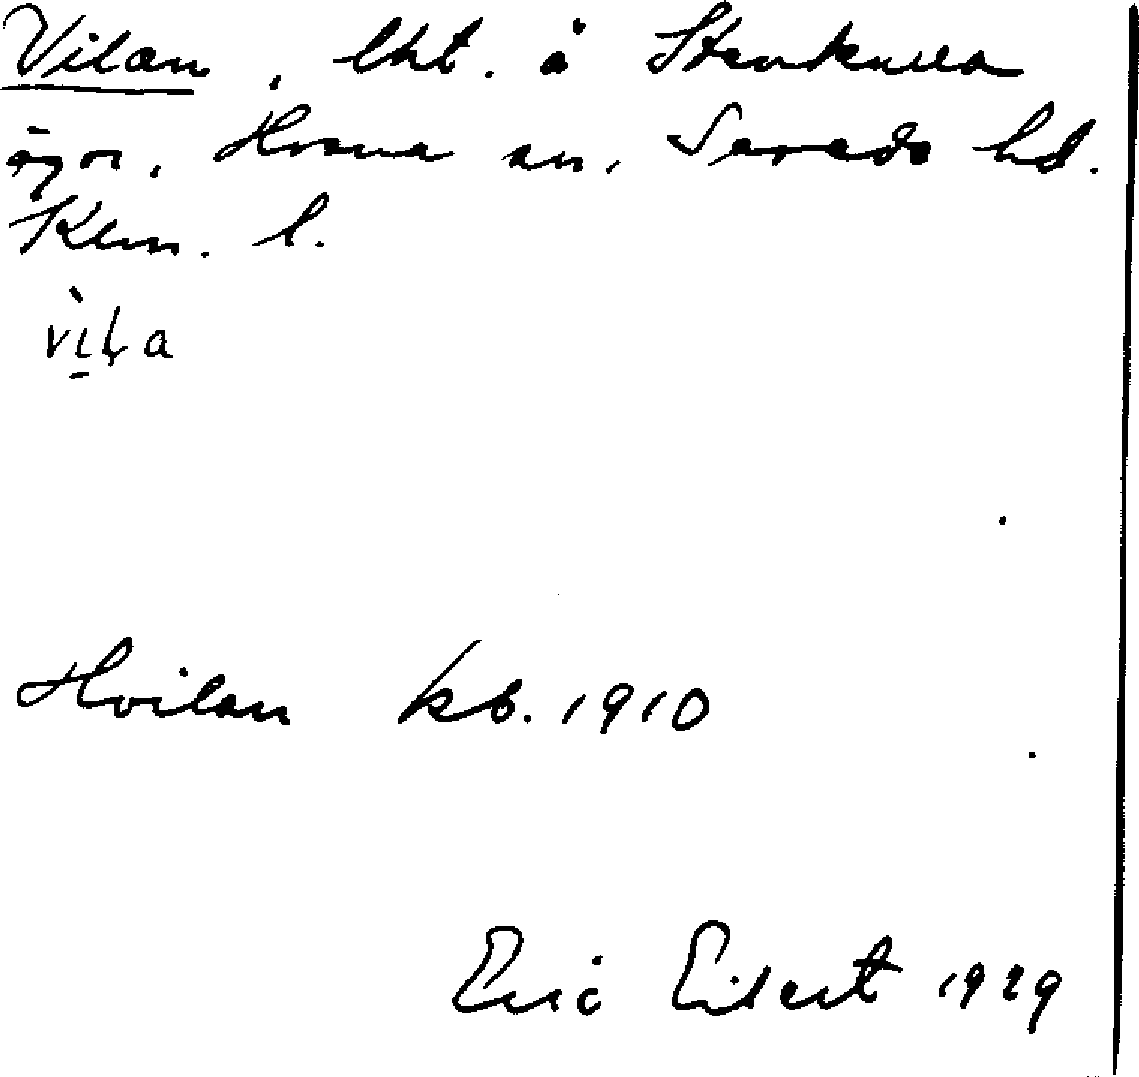 Vilan, lht. å Stenkulla
ägor, Hvena sn, Sevede hd.
Klm. l.
vìḷa
Hvilan kb. 1910
Eric Eilert 1929